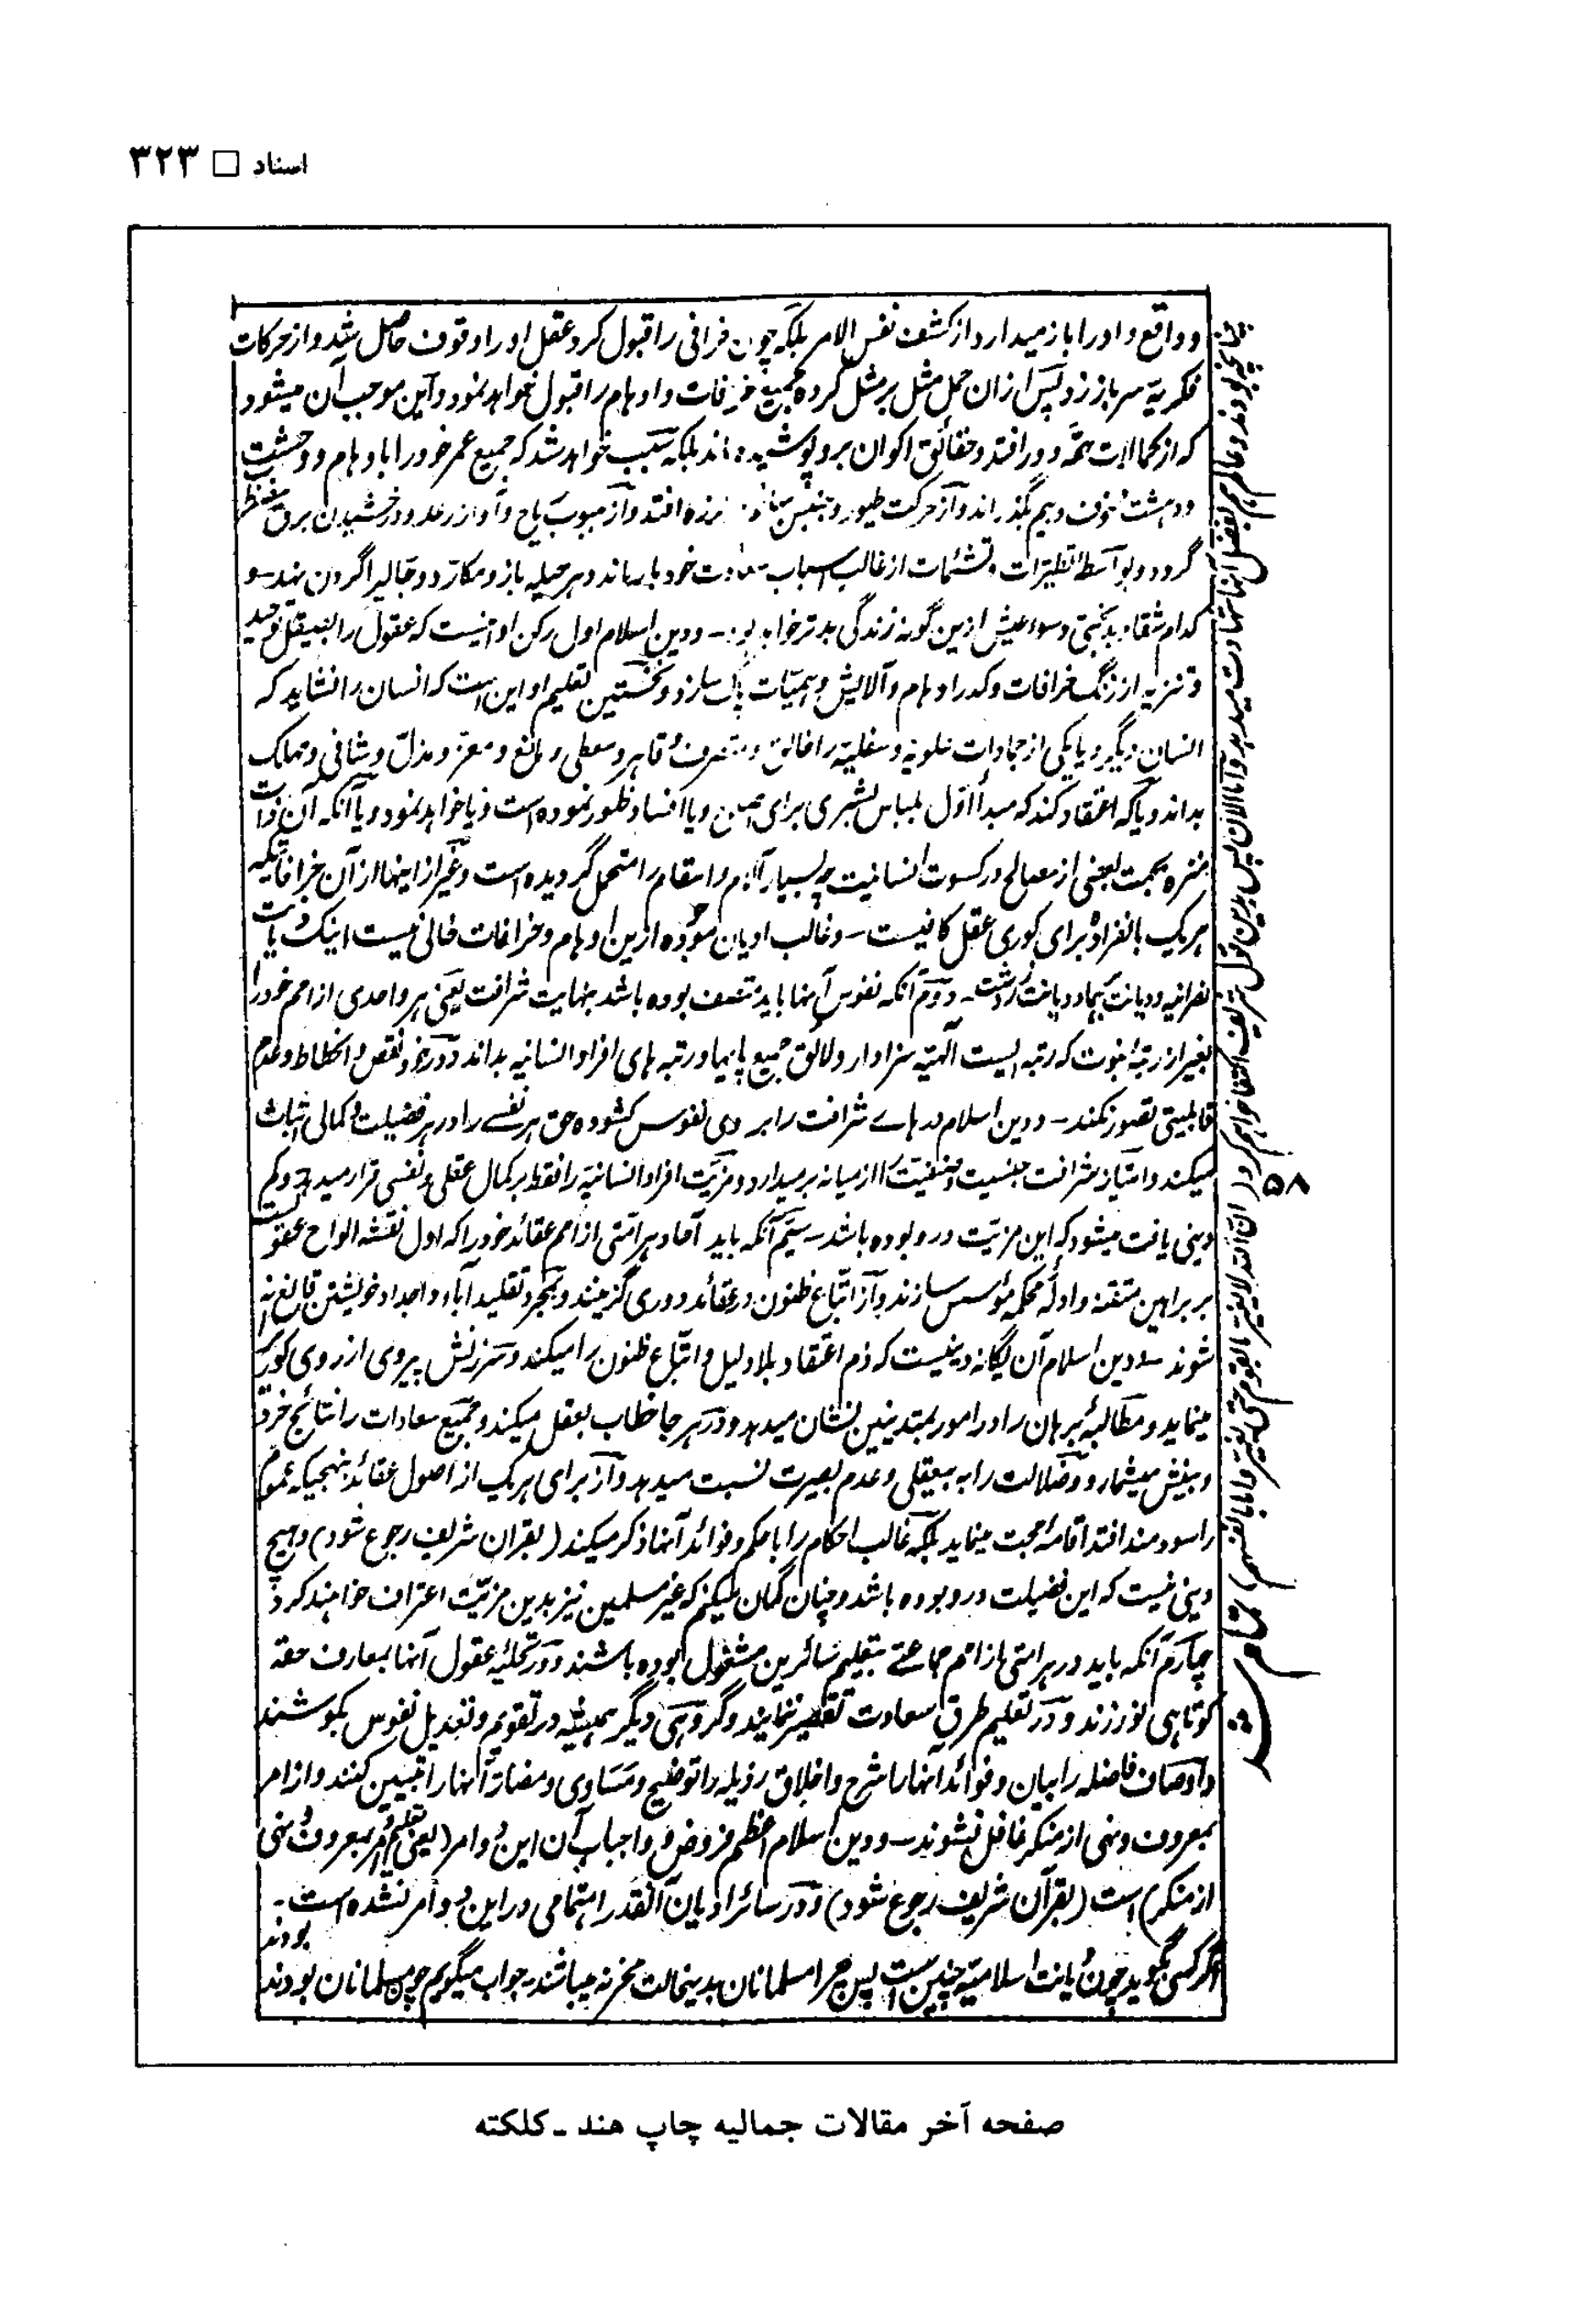 اسناد □ ۳۲۳
و واقع و اورا باز میدارد از کشف نفس الامر بلکه چون خرافی را قبول کرد عقل او را وقوف حاصل شد و از حرکات
فکریه سر باز زد و پس ازان حمل مثل بر مثل کرده جمیع خرافات و اوهام را قبول خواهد نمود و این موجب آن میشود
که از کمالات حقه دور افتد و حقائق اکوان برو پوشیده ماند بلکه سبب خواهد شد که جمیع عمر خود را باوهام و وحشت
و دهشت و خوف و بیم بگذراند و از حرکت طیور و جنبش بهائم لرزه افتد و از هبوب ریاح و آواز رعد و درخشیدن برق مضطر
گردد و بواسطهٔ تطیرات و تشئمات از غالب اسباب سعادت خود باز ماند و هر حیله باز و مکار و دجالیرا گردن نهد - و
کدام شقا و بدبختی و سوء عیش ازین گونه زندگی بدتر خواهد بود - و دین اسلام اول رکن او اینست که عقول را بصیقل توحید
و تنزیه از زنگ خرافات و کدر اوهام و آلایش وهمیات پاک سازد و نخستین تعلیم او این است که انسان را نشاید که
انسان دیگر و یا یکی از جمادات علویه و سفلیه را خالق و متصرف و قاهر و معطی و مانع و معز و مذل و شافی و مهلک
بداند و یا که اعتقاد کند که مبدأ اول بلباس بشری برای اصلاح ویا افساد ظهور نموده است و یا خواهد نمود و یا آنکه آن ذات
منزه بجهت بعضی از مصالح در کسوت انسانیت چه بسیار آلام و اسقام را متحمل گردیده است و غیر از اینها از آن خرافاتیکه
هر یک بانفراده برای کوری عقل کافیست - و غالب ادیان موجوده ازین اوهام و خرافات خالی نیست اینک دیانت
نصرانیه و دیانت برهما و دیانت زردشت - دوم آنکه نفوس آنها باید متصف بوده باشد بنهایت شرافت یعنی هر واحدی از امم خود را
بغیر از رتبهٔ نبوت که رتبه ایست الهیه سزاوار و لائق جمیع پایها و رتبه های افراد انسانیه بداند و در خود نقص و انحطاط و عدم
قابلیتی تصور نکند - و دین اسلام درهاے شرافت را بر روی نفوس کشوده حق هر نفسے را در هر فضیلت و کمالی اثبات
میکند و امتیاز شرافت جنسیت و صنفیت را از میانه برمیدارد و مزیت افراد انسانیه را فقط بر کمال عقلی و نفسی قرار میدهد و کم
دینی یافت میشود که این مزیت درو بوده باشد - سیّم آنکه باید آحاد هر امتی از امم عقائد خود را که اول نقشهٔ الواح عقولست
بر براهین متقنه و ادلّه محکمه مؤسس سازند و از اتباع ظنون در عقائد دوری گزینند و بمجرد تقلید آباء و اجداد خویشتن قانع نه
شوند - و دین اسلام آن یگانه دینیست که ذم اعتقاد بلا دلیل و اتباع ظنون را میکند و سرزنش پیروی از روی کوری
مینماید و مطالبهٔ برهان را در امور بمتدینین نشان میدهد و در هر جا خطاب بعقل میکند و جمیع سعادات را نتائج خرد
و بینش میشمارد و ضلالت را به بیعقلی و عدم بصیرت نسبت میدهد و از برای هر یک از اصول عقائد بنهجیکه عموم
را سودمند افتد اقامهٔ حجت مینماید بلکه غالب احکام را با حکم و فوائد آنها ذکر میکند (بقران شریف رجوع شود) و هیچ
دینی نیست که این فضیلت درو بوده باشد و چنان گمان میکنم که غیر مسلمین نیز بدین مزیت اعتراف خواهند کرد
چهارم آنکه باید در هر امتی از امم جماعتے بتعلیم سائرین مشغول بوده باشند و در تحلیهٔ عقول آنها بمعارف حقه
کوتاهی نورزند و در تعلیم طرق سعادت تقصیر ننمایند و گروهی دیگر همیشه در تقویم و تعدیل نفوس بکوشند
و اوصاف فاضله را بیان و فوائد آنها را شرح و اخلاق رذیله را توضیح و مساوی و مضار آنها را تبیین کنند و از امر
بمعروف و نهی از منکر غافل نشوند - و دین اسلام اعظم فروض و واجبات آن این دو امر (یعنی تعلیم و امر بمعروف و نهی
از منکر) است (بقرآن شریف رجوع شود) و در سائر ادیان آنقدر اهتمامی در این دو امر نشده است -
اگر کسی بگوید چون دیانت اسلامیه چنین است پس چرا مسلمانان بدینحالت محزنه میباشند جواب میگویم چون مسلمانان بودند بودند
چنانچه بودند و عالم هم بفضل آنها شهادت میدهد و اما الان پس بدین قول شریف اکتفا خواهم کرد (ان الله لا یغیر ما بقوم حتی یغیروا ما بانفسهم)
۵۸
صفحه آخر مقالات جمالیه چاپ هند ـ کلکته